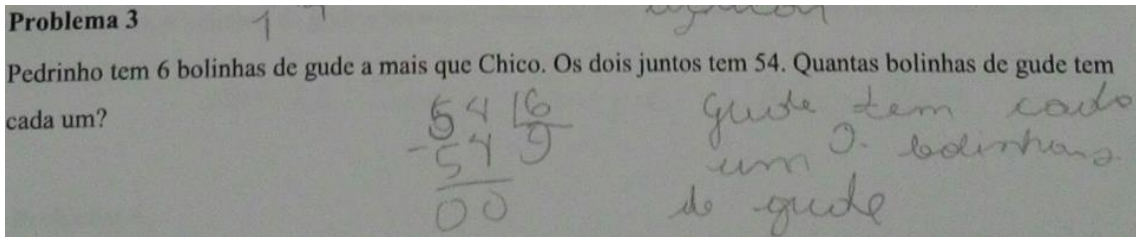 Problema 3
Pedrinho tem 6 bolinhas de gude a mais que Chico. Os dois juntos tem 54. Quantas bolinhas de gude tem
cada um?
54 | 6
- 54 9
00
gude tem cada
um 9. bolinhas
de gude